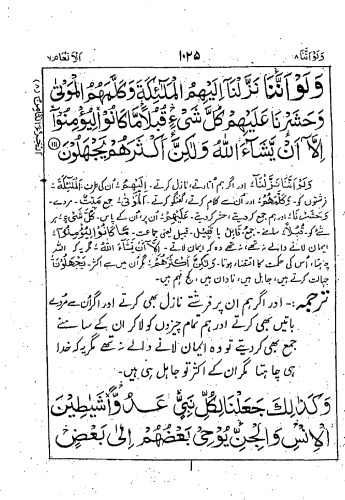 ولواننا ۸ ۱۰۲۵ الانعام ۶
وَلَوْ اَنَّنَا نَزَّلْنَاۤ اِلَیْهِمُ الْمَلٰٓئِكَةَ وَكَلَّمَهُمُ الْمَوْتٰی
وَحَشَرْنَا عَلَیْهِمْ كُلَّ شَیْءٍ قُبُلًا مَّا كَانُوْا لِیُؤْمِنُوْۤا
اِلَّاۤ اَنْ یَّشَآءَ اللّٰهُ وَلٰكِنَّ اَكْثَرَهُمْ یَجْهَلُوْنَ ۝۱۱۱
وَلَوْ اَنَّنَا نَزَّلْنَاۤ: اور اگر ہم اتارتے، نازل کرتے۔ اِلَیْهِمُ: ان کی طرف۔ الْمَلٰٓئِكَةَ:
فرشتوں کو۔ وَكَلَّمَهُمُ: اور ان سے کلام کرتے، گفتگو کرتے۔ الْمَوْتٰی: جمع میّت۔ مردے۔
وَحَشَرْنَا: اور ہم جمع کر دیتے، حشر کر دیتے۔ عَلَیْهِمْ: ان پر، ان کے پاس۔ كُلَّ شَیْءٍ: ہر
شے کو۔ قُبُلًا: سامنے۔ جمع قبیل۔ قبل یعنی جماعت۔ مَّا كَانُوْا لِیُؤْمِنُوْۤا:
ایمان لانے والے نہ تھے، نہ تھے وہ کہ ایمان لاتے۔ اِلَّاۤ اَنْ یَّشَآءَ اللّٰهُ: مگر یہ کہ اللہ
چاہتا، اس کی حکمت کا اقتضا ہوتا۔ وَلٰكِنَّ اَكْثَرَهُمْ: مگر ان میں سے اکثر۔ یَجْهَلُوْنَ:
جہالت کرتے ہیں، جاہل ہیں، نادان ہیں، کج فہم ہیں۔
ترجمہ:۔ اور اگر ہم ان پر فرشتے نازل بھی کرتے اور اگر ان سے مردے
باتیں بھی کرتے اور ہم تمام چیزوں کو لا کر ان کے سامنے
جمع بھی کر دیتے تو وہ ایمان لانے والے نہ تھے مگر یہ کہ خدا
ہی چاہتا مگر ان کے اکثر تو جاہل ہی ہیں۔
وَكَذٰلِكَ جَعَلْنَا لِكُلِّ نَبِیٍّ عَدُوًّا شَیٰطِیْنَ
الْاِنْسِ وَالْجِنِّ یُوْحِیْ بَعْضُهُمْ اِلٰی بَعْضٍ